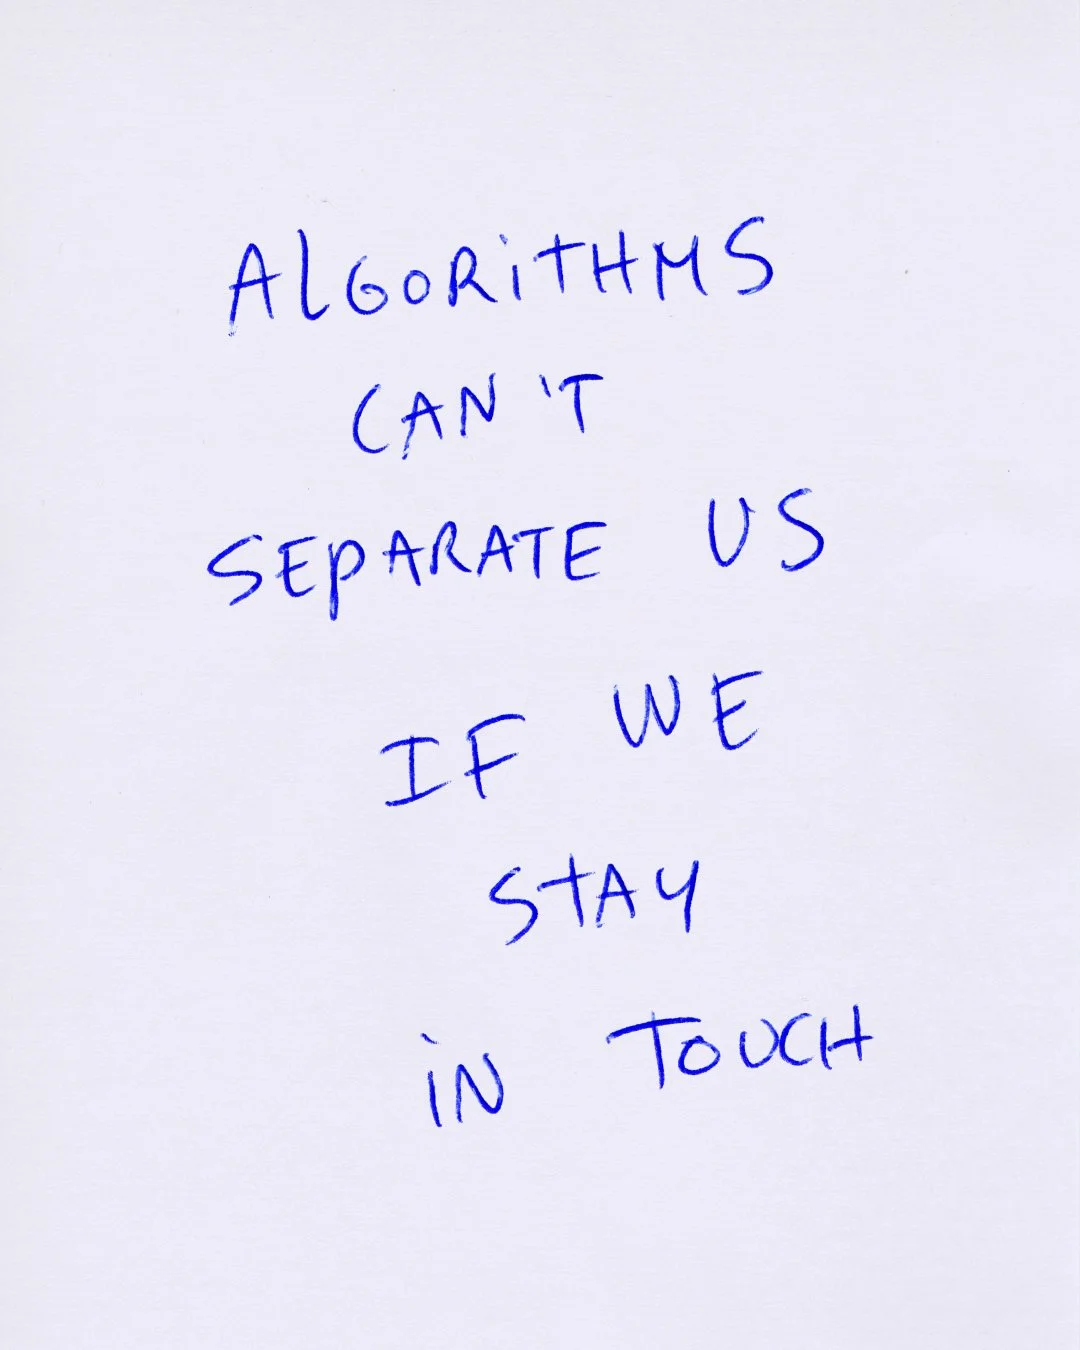 ALGORiTHMS
CAN'T
SEPARATE US
IF WE
STAY
iN TOUCH